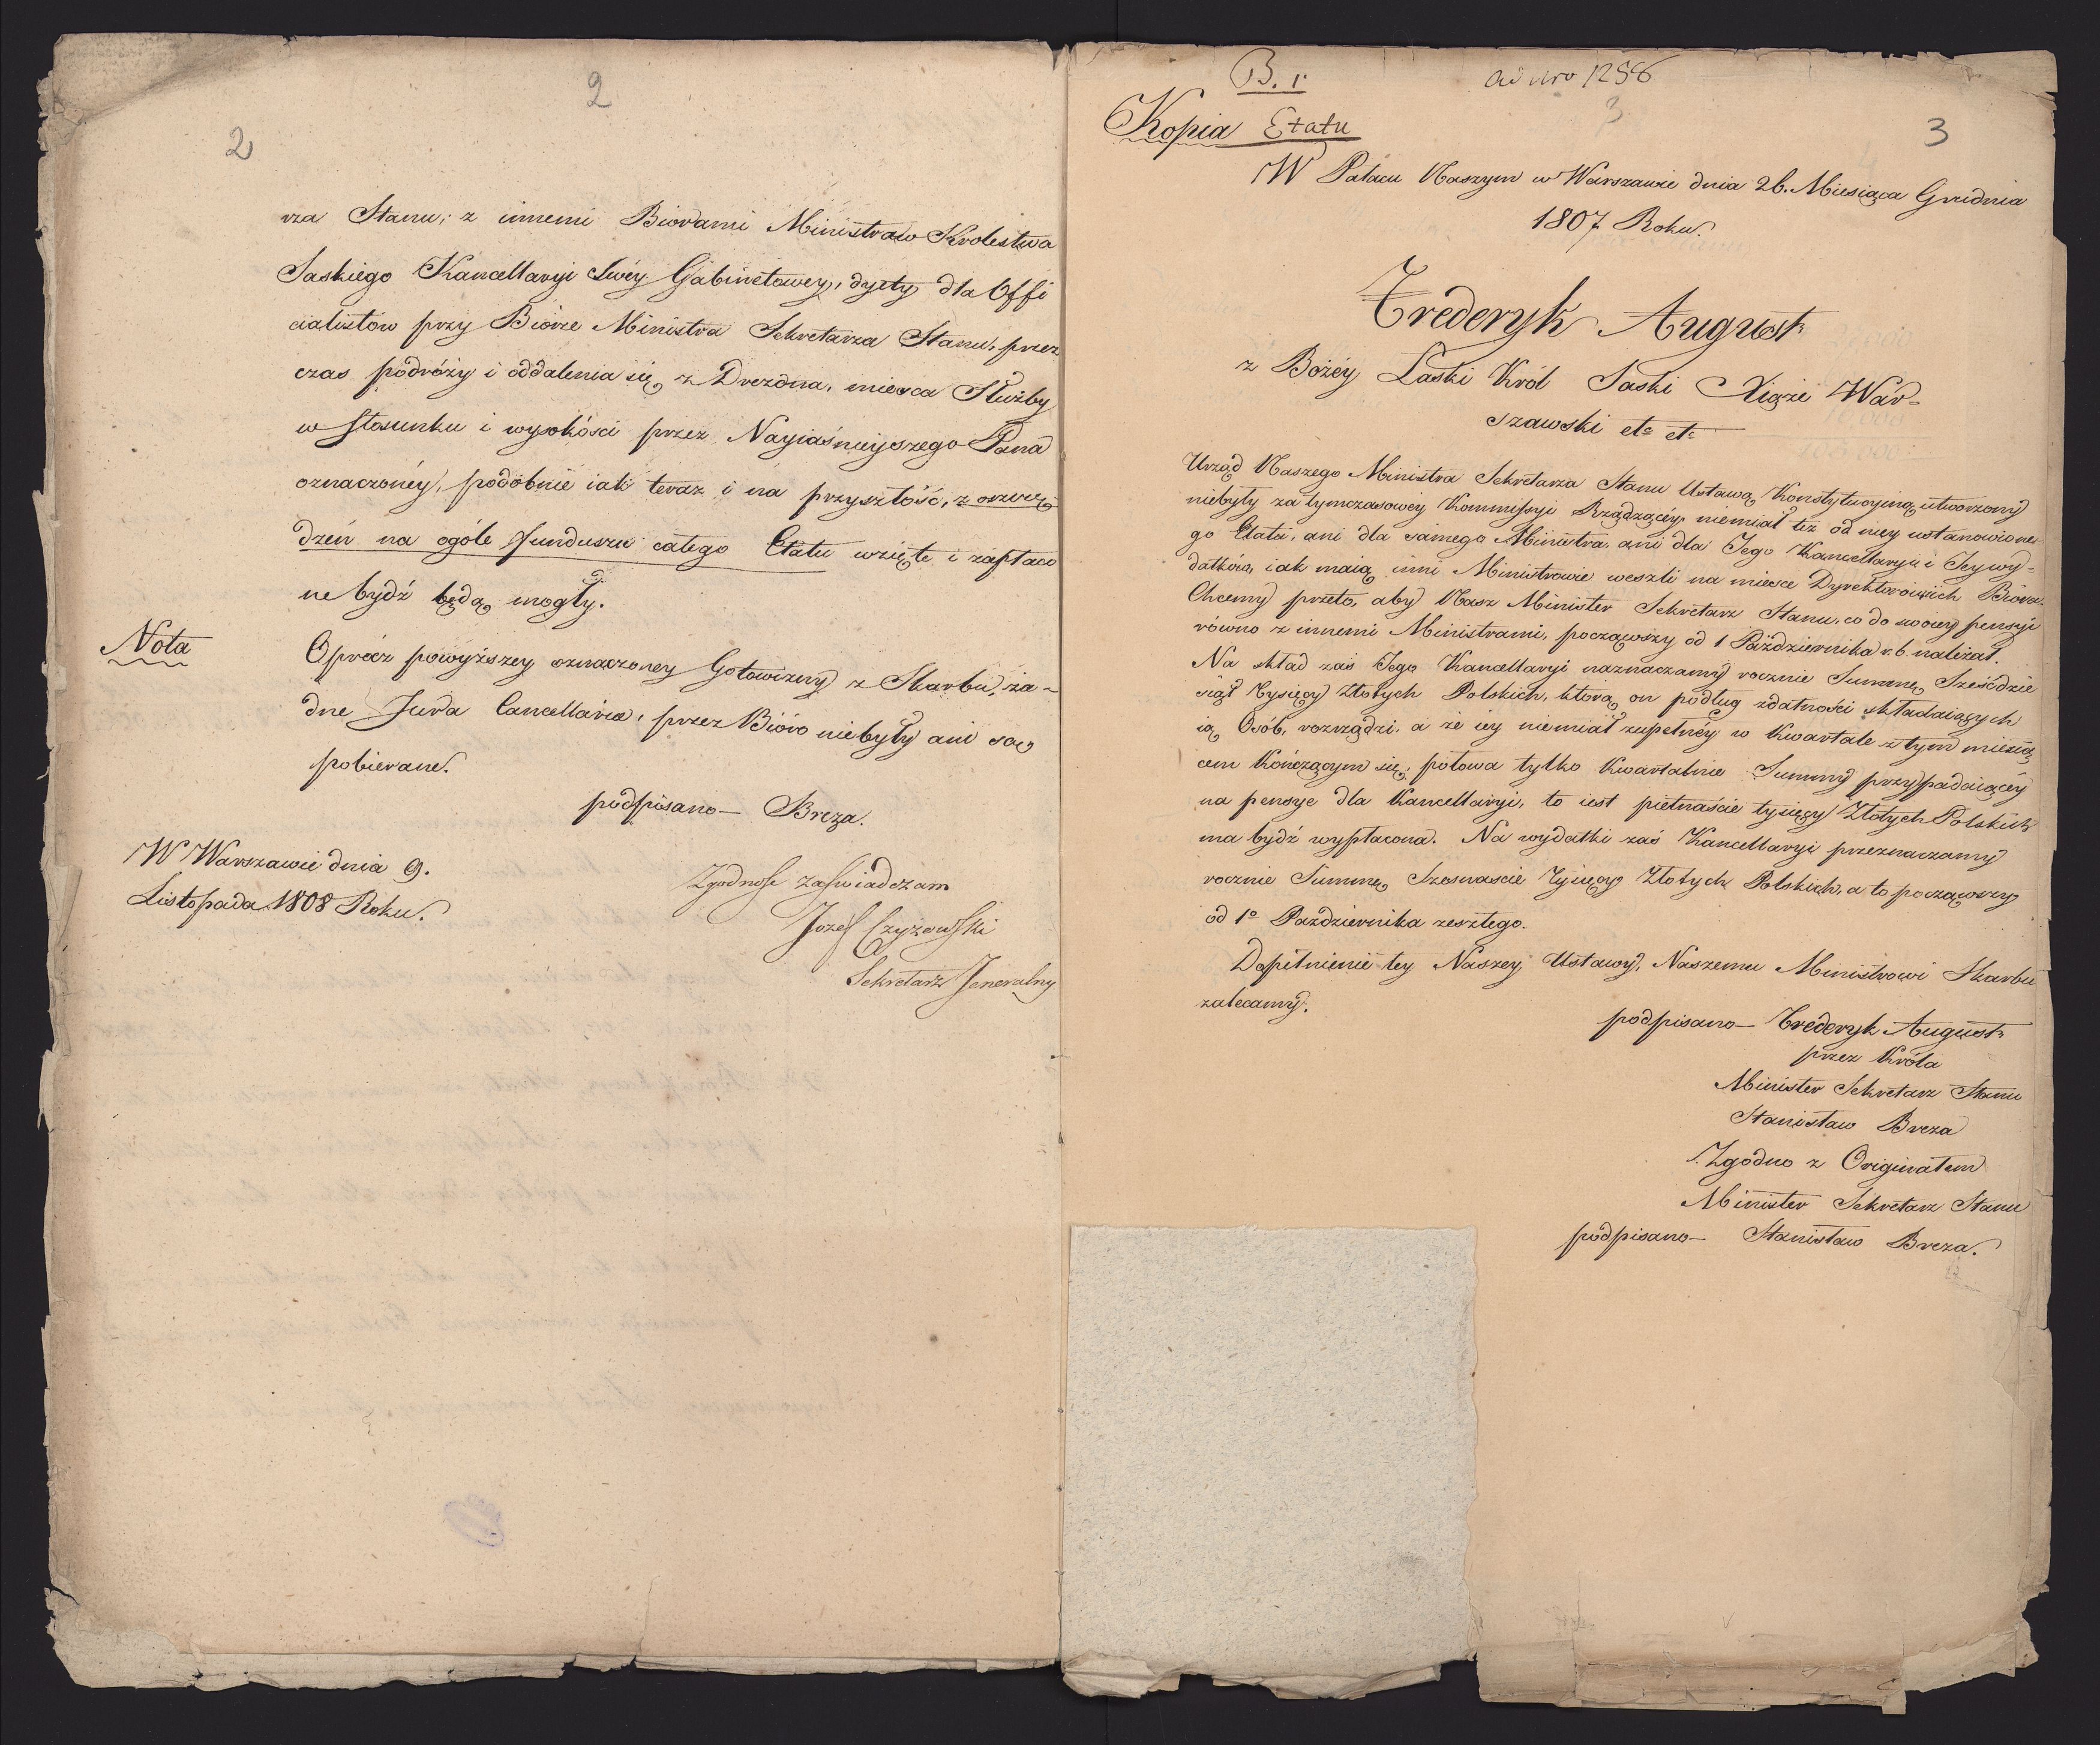 2
2
rza Stanu; z innemi Biorami Ministrów Krolestwa
Saskiego Kancellaryi Swéy Gabinetowey, dyety dla Offi
cialistów przy Biórze Ministra Sekretarza Stanu, przez
czas podróży i oddalenia się z Drezdna, mieysca Służby
w stosunku i wysokości przez Nayiaśnieyszego Pana
oznaczonéy, podobnie iak teraz i na przyszłość, z oszczę
dzeń na ogóle funduszu całego Etatu wzięte i zapłaco
ne bydź będą mogły.
Nota
Oprócz powyższey oznaczoney Gotowizny z Skarbu, ża-
dne Jura Cancellaria, przez Bióro niebyły ani są
pobierane.
podpisano — Breza.
W Warszawie dnia 9.
Listopada 1808 Roku.
Zgodnosc zaswiadczam
Jozef Czyżewski
Sekretarz Jeneralny
B. 1.
ad Nro 1256
Kopia Etatu
3
3
W Pałacu Naszym w Warszawie dnia 26. Miesiąca Grudnia
1807 Roku.
Frederyk August
z Bożéy Łaski Król Saski Xiąże War-
szawski etc etc
Urząd Naszego Ministra Sekretarza Stanu Ustawą Konstytucyiną utworzony
niebyły za tymczasowéy Kommissyi Rządzącéy, niemiał też od niey ustanowione
go Etatu, ani dla samego Ministra, ani dla Jego Kancellaryi i Jey wy-
datków, iak maią inni Ministrowie weszli na mieysce Dyrektorowich Biór.
Chcemy przeto, aby Nasz Minister Sekretarz Stanu, co do swoiey pensyi
równo z innemi Ministrami, począwszy od 1 Października r. b. należał.
Na skład zaś Jego Kancellaryi naznaczamy rocznie Summę Sześćdzie
siąt Tysięcy Złotych Polskich, którą on podług zdatności składaiących
ią Osób, rozrządzi, a że iey niemiał zupełnéy w Kwartale z tym miesią
cem Kończącym się, połowa tylko Kwartalnie Summy przypadaiącéy
na pensye dla Kancellaryi, to iest pietnaście tysięcy Złotych Polskich
ma bydź wypłacona. Na wydatki zaś Kancellaryi przeznaczamy
rocznie Summę Szesnaście Tysięcy Złotych Polskich, a to począwszy
od 1o Października zeszłego.
Dopełnienie tey Naszey Ustawy, Naszemu Ministrowi Skarbu
zalecamy.
podpisano — Frederyk August
przez Króla
Minister Sekretarz Stanu
Stanisław Breza
Zgodno z Originałem
Minister Sekretarz Stanu
podpisano — Stanisław Breza.